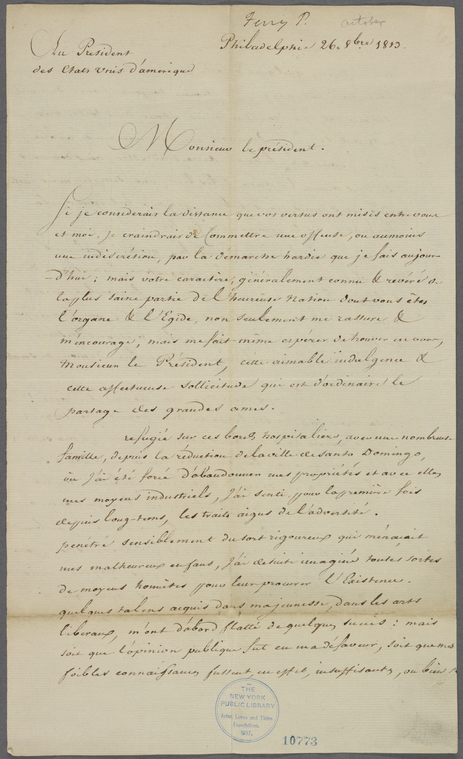 Ferry P. October
Philadelphie 26. 8bre 1813.
Au President
des Etats unis d'amerique
Monsieur le président.
Si je considerais la distance que vos vertus ont mises entre vous
et moi, je craindrais de Commettre une offense, ou aumoins
une indiscrétion, par la demarche hardie que je fais aujour-
d'hui: mais votre caractere, généralement connu & révéré de
la plus saine partie de l'heureuse Nation dont vous êtes
l'organe & l'Egide, non seulement me rassure &
m'encourage; mais me fait même espérer de trouver en vous,
Monsieur le President, cette aimable indulgence &
cette affectueuse sollicitude qui est d'ordenaire le
partage des grandes ames.
refugié sur ces bords hospitaliers, avec une nombreuse
famille, depuis la réduction de la ville de Santo Domingo,
où j'ai été forcé d'abandonner mes propriétés et avec elles
mes moyens industriels, j'ai senti pour la premiere fois
depuis long-tems, les traits aigus de l'adversité.
penétré sensiblement du sort rigoureux qui ménaçait
mes malheureux enfans, j'ai desuite imaginé toutes sortes
de moyens honnêtes pour leur procurer l'Existence.
quelques talens acquis dans ma jeunesse, dans les arts
liberaux, m'ont d'abord flatté de quelques succès: mais
soit que l'opinion publique fut en ma défaveur, soit que mes
foibles connaissances fussent, en effet, insuffisantes, ou bien
THE
NEW YORK
PUBLIC LIBRARY
Astor, Lenox and Tilden
Foundations.
10773